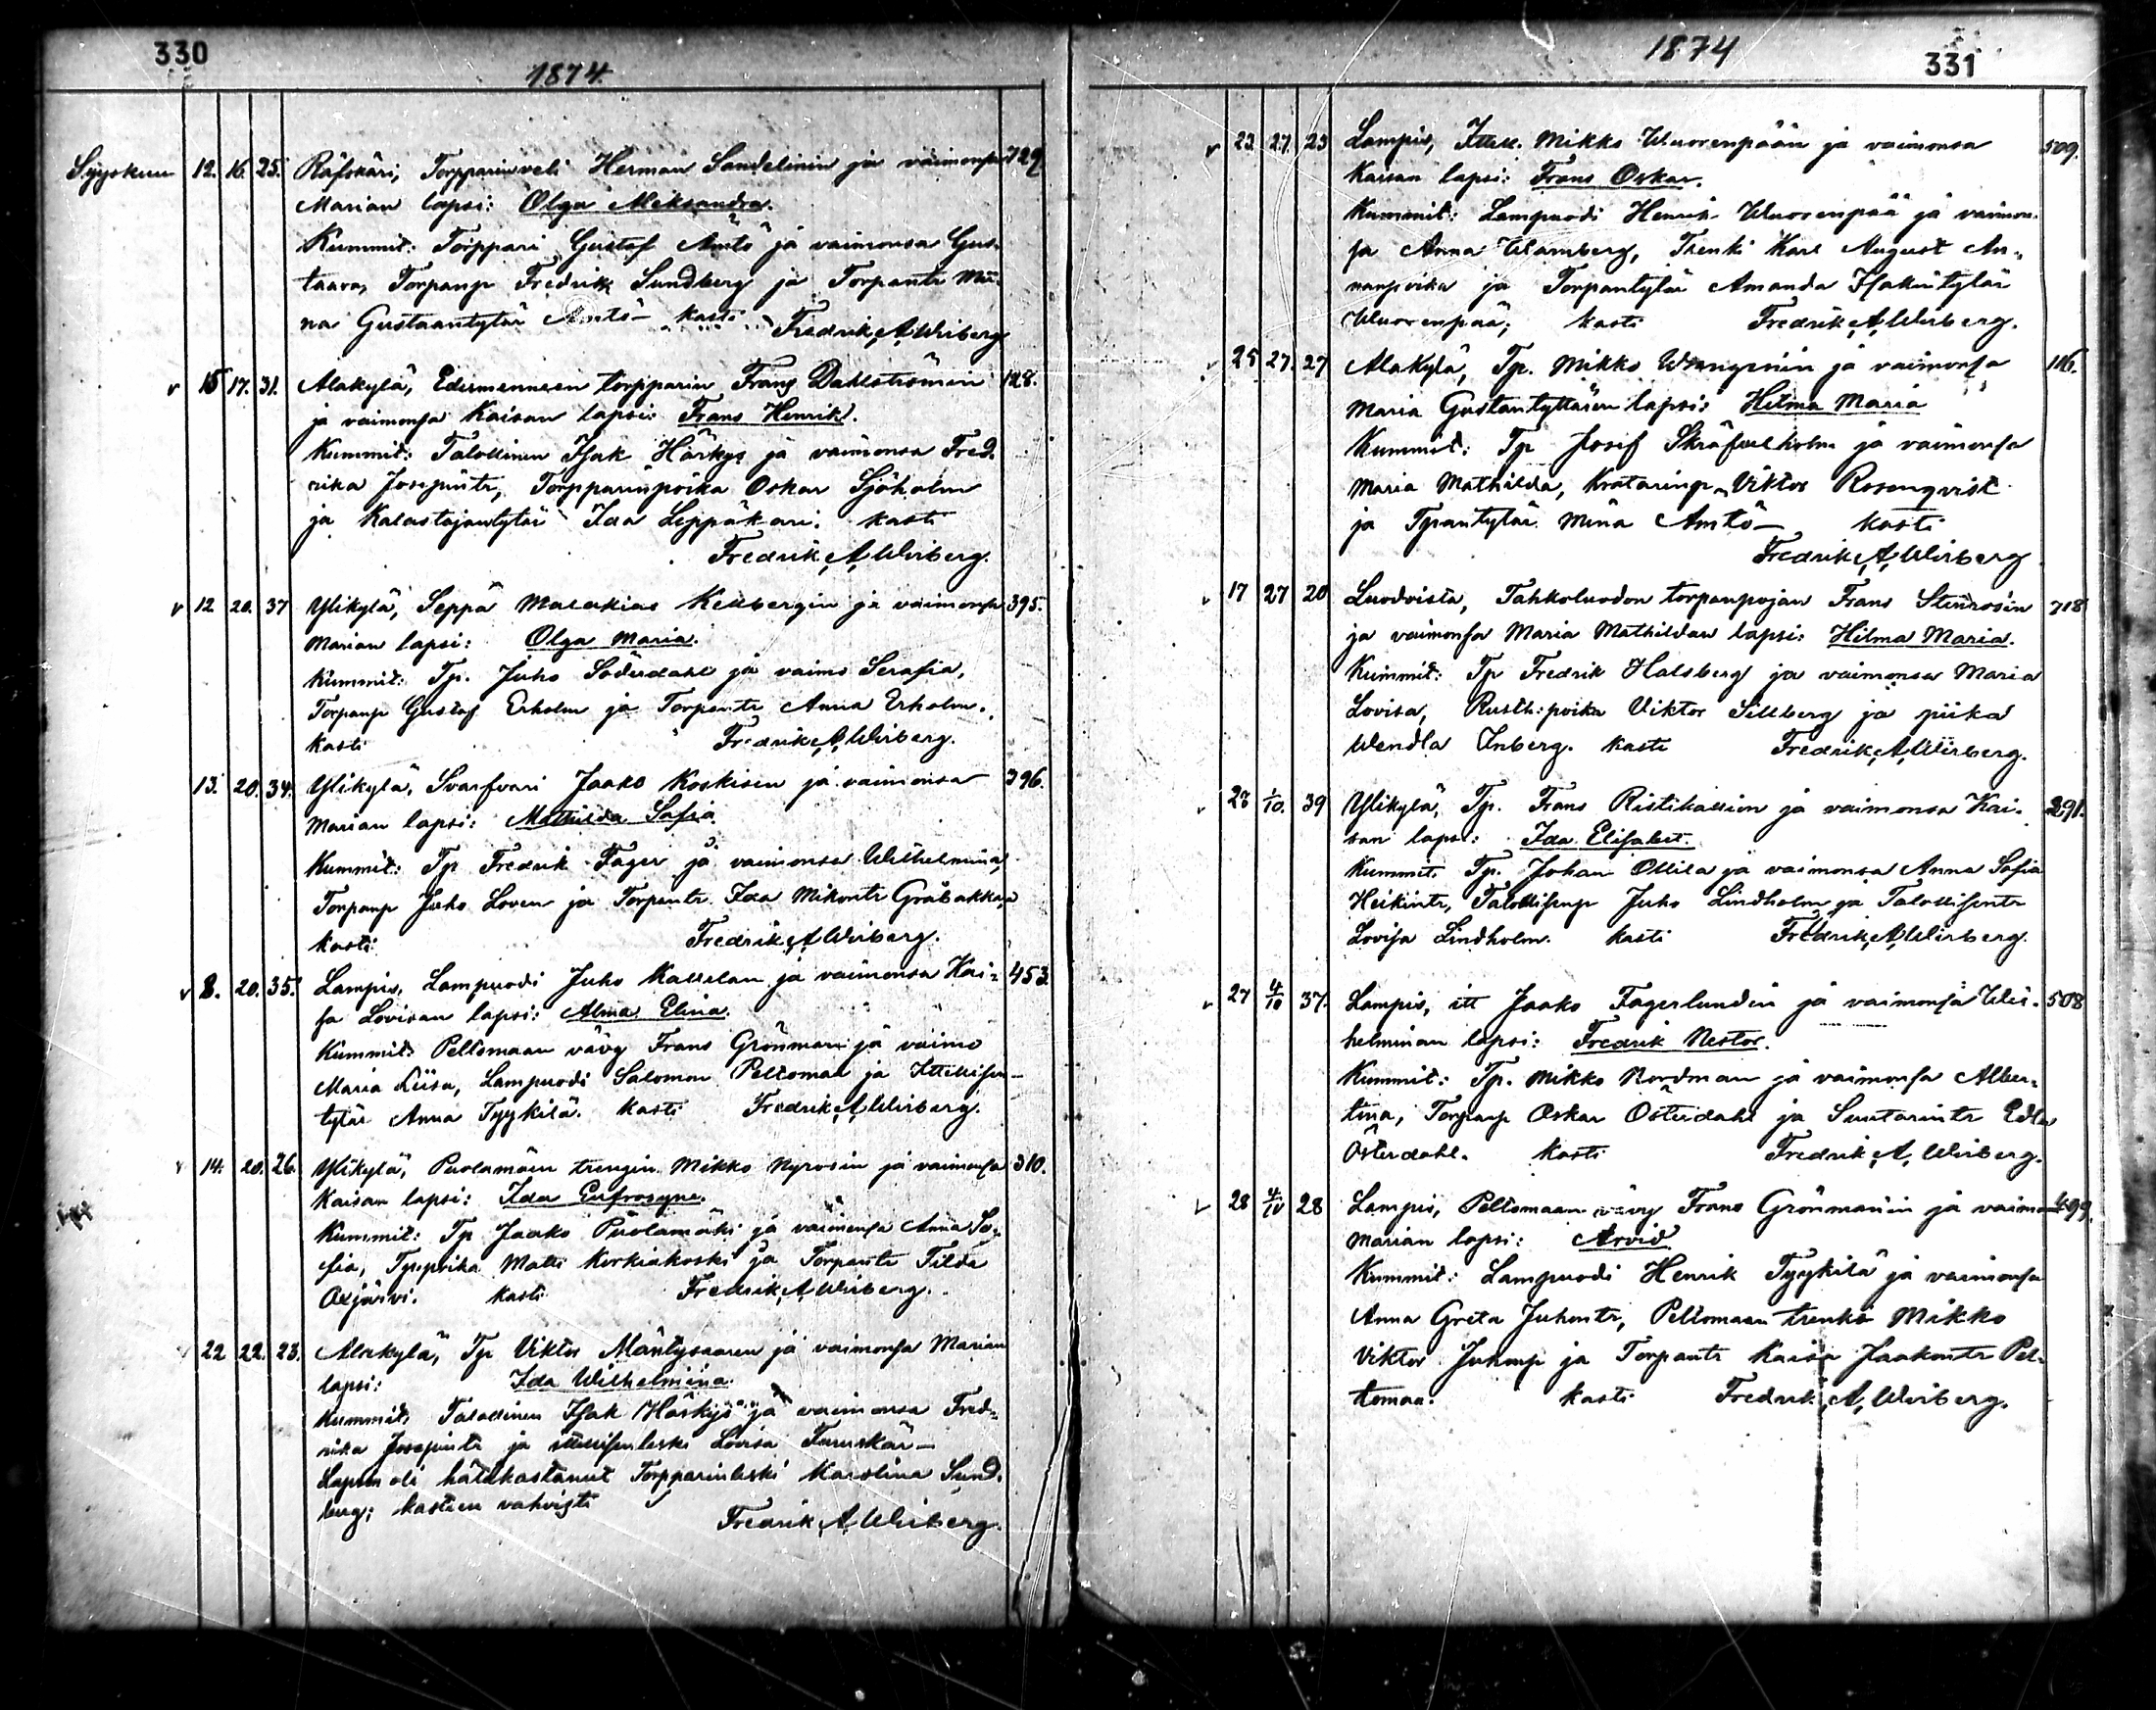 330
1874.
Syyskuu 12. 16. 25. Räfskäri, Torpparinveli Herman Sandelinin ja vaimonsa 729.
Marian lapsi: Olga Aleksandra.
Kummit: Torppari Gustaf Amtö ja vaimonsa Gus-
taava, Torpanp Fredrik Sundberg ja Torpantr Mii-
na Gustaantytär Amtö — kasti Fredrik A Wirberg
v 15 17. 31. Alakylä, Edesmenneen torpparin Frans Dahlströmin 128.
ja vaimonsa Kaisan lapsi: Frans Henrik.
Kummit: Talollinen Isak Härkys ja vaimonsa Fred-
rika Josepintr, Torpparinpoika Oskar Sjöholm
ja Kalastajantytär Ida Leppäkari. kasti
Fredrik A Wirberg.
v 12 20. 37 Ylikylä, Seppä Malakias Kellbergin ja vaimonsa 395.
Marian lapsi: Olga Maria.
Kummit: Tp. Juho Söderdahl ja vaimo Serafia,
Torpanp Gustaf Erholm ja Torpantr Anna Erholm.
kasti Fredrik A Wirberg.
13. 20. 34. Ylikylä, Svarfvari Jaako Koskisen ja vaimonsa 396.
Marian lapsi: Mathilda Sofia.
Kummit: Tp Fredrik Fager ja vaimonsa Wilhelmina,
Torpanp Juho Loven ja Torpantr Ida Mikontr Gråbakka,
kasti: Fredrik A Wirberg.
v 8. 20. 35. Lampis, Lampuodi Juho Kallelan ja vaimonsa Kai- 453
sa Lovisan lapsi: Alma Elina.
Kummit: Peltomaan vävy Frans Grönman ja vaimo
Maria Liisa, Lampuodi Salomon Peltomaa ja Itellisen-
tytär Anna Tyykilä. kasti Fredrik A Wirberg.
v 14. 20. 26. Ylikylä, Puolamäen trengin Mikko Nyrosin ja vaimonsa 310.
Kaisan lapsi: Ida Eufrosyne.
Kummit: Tp Jaako Puolamäki ja vaimonsa Anna So-
fia, Tp:poika Matti Korkiakoski ja Torpantr Tilda
Ojjärvi. kasti Fredrik A Wirberg.
22 22. 23. Alakylä, Tp Viktor Mäntysaaren ja vaimonsa Marian
lapsi: Ida Wilhelmina.
Kummit: Talollinen Isak Härkys ja vaimonsa Fred-
rika Josepintr ja itellisenleski Lovisa Furuskär —
Lapsen oli hätäkastanut Torpparinleski Karolina Sund-
berg; kasteen vahvisti
Fredrik A Wirberg.
1874
331
v 23. 27. 23 Lampis, Itell. Mikko Wuorenpään ja vaimonsa 509.
Kaisan lapsi: Frans Oskar.
Kummit: Lampuodi Henrik Wuorenpää ja vaimon-
sa Anna Warnberg, Trenki Karl August An-
nanpoika ja Torpantytär Amanda Isakintytär
Wuorenpää; kasti Fredrik A Wirberg.
25 27. 27 Alakylä, Tp. Mikko Wrangenin ja vaimonsa 116.
Maria Gustantyttären lapsi: Hilma Maria
Kummit: Tp Josef Skräfvelholm ja vaimonsa
Maria Mathilda, Kratarinp. Viktor Rosenqvist
ja Tpantytär Miina Amtö — kasti
Fredrik A Wirberg
v 17 27 20 Luodoista, Tahkoluodon torpanpojan Frans Stenrosin 718
ja vaimonsa Maria Mathildan lapsi: Hilma Maria.
Kummit: Tp Fredrik Halsberg ja vaimonsa Maria
Lovisa, Rusth:poika Viktor Sillberg ja piika
Wendla Inberg. kasti Fredrik A Wirberg.
v 27 1/10. 39 Ylikylä, Tp. Frans Ristikallion ja vaimonsa Kai- 291.
san lapsi: Ida Elisabet.
Kummit: Tp. Johan Ollila ja vaimonsa Anna Sofia
Heikintr, Talollisenp Juho Lindholm ja Talollisentr
Lovisa Lindholm. kasti Fredrik A Wirberg.
v 27 4/10 37. Lampis, itt Jaako Fagerlundin ja vaimonsa Wil- 508
helminan lapsi: Fredrik Nestor.
Kummit: Tp. Mikko Nordman ja vaimonsa Alber-
tina, Torpanp Oskar Österdahl ja Suutarintr Edla
Österdahl. kasti Fredrik A Wirberg.
v 28 4/10 28 Lampis, Peltomaan vävy Frans Grönmanin ja vaimon 499.
Marian lapsi: Arvid
Kummit: Lampuodi Henrik Tyykilä ja vaimonsa
Anna Greta Juhontr, Peltomaan trenki Mikko
Viktor Juhonp ja Torpantr Kaisa Jaakontr Pel-
tomaa. kasti Fredrik A Wirberg.